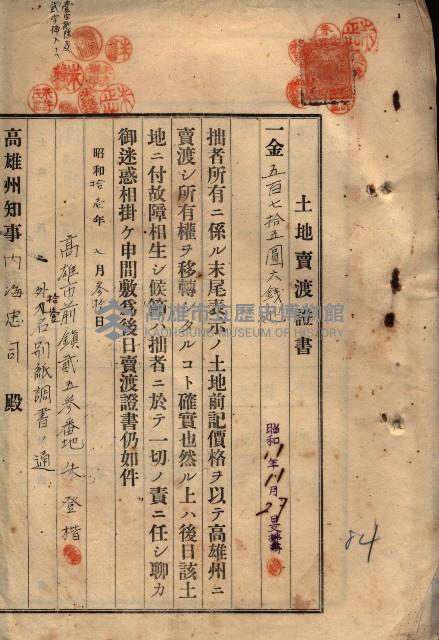 土地賣渡證書
一金五百七拾五圓六錢
拙者所有ニ係ル末尾表示ノ土地前記價格ヲ以テ高雄州ニ
賣渡シ所有權ヲ移轉シタルコト確實也然ル上ハ後日該土
地ニ付故障相生シ候節ハ拙者ニ於テ一切ノ責ニ任シ聊カ
御迷惑相掛ケ申間敷爲後日賣渡證書仍如件
昭和拾壱年七月参拾日
高雄市前鎮貳五參番地朱登楷
外拾壹名別紙調書ノ通
高雄州知事內海忠司殿
昭和11年11月27日
84
高雄市立歷史博物館
KAOHSIUNG MUSEUM OF HISTORY